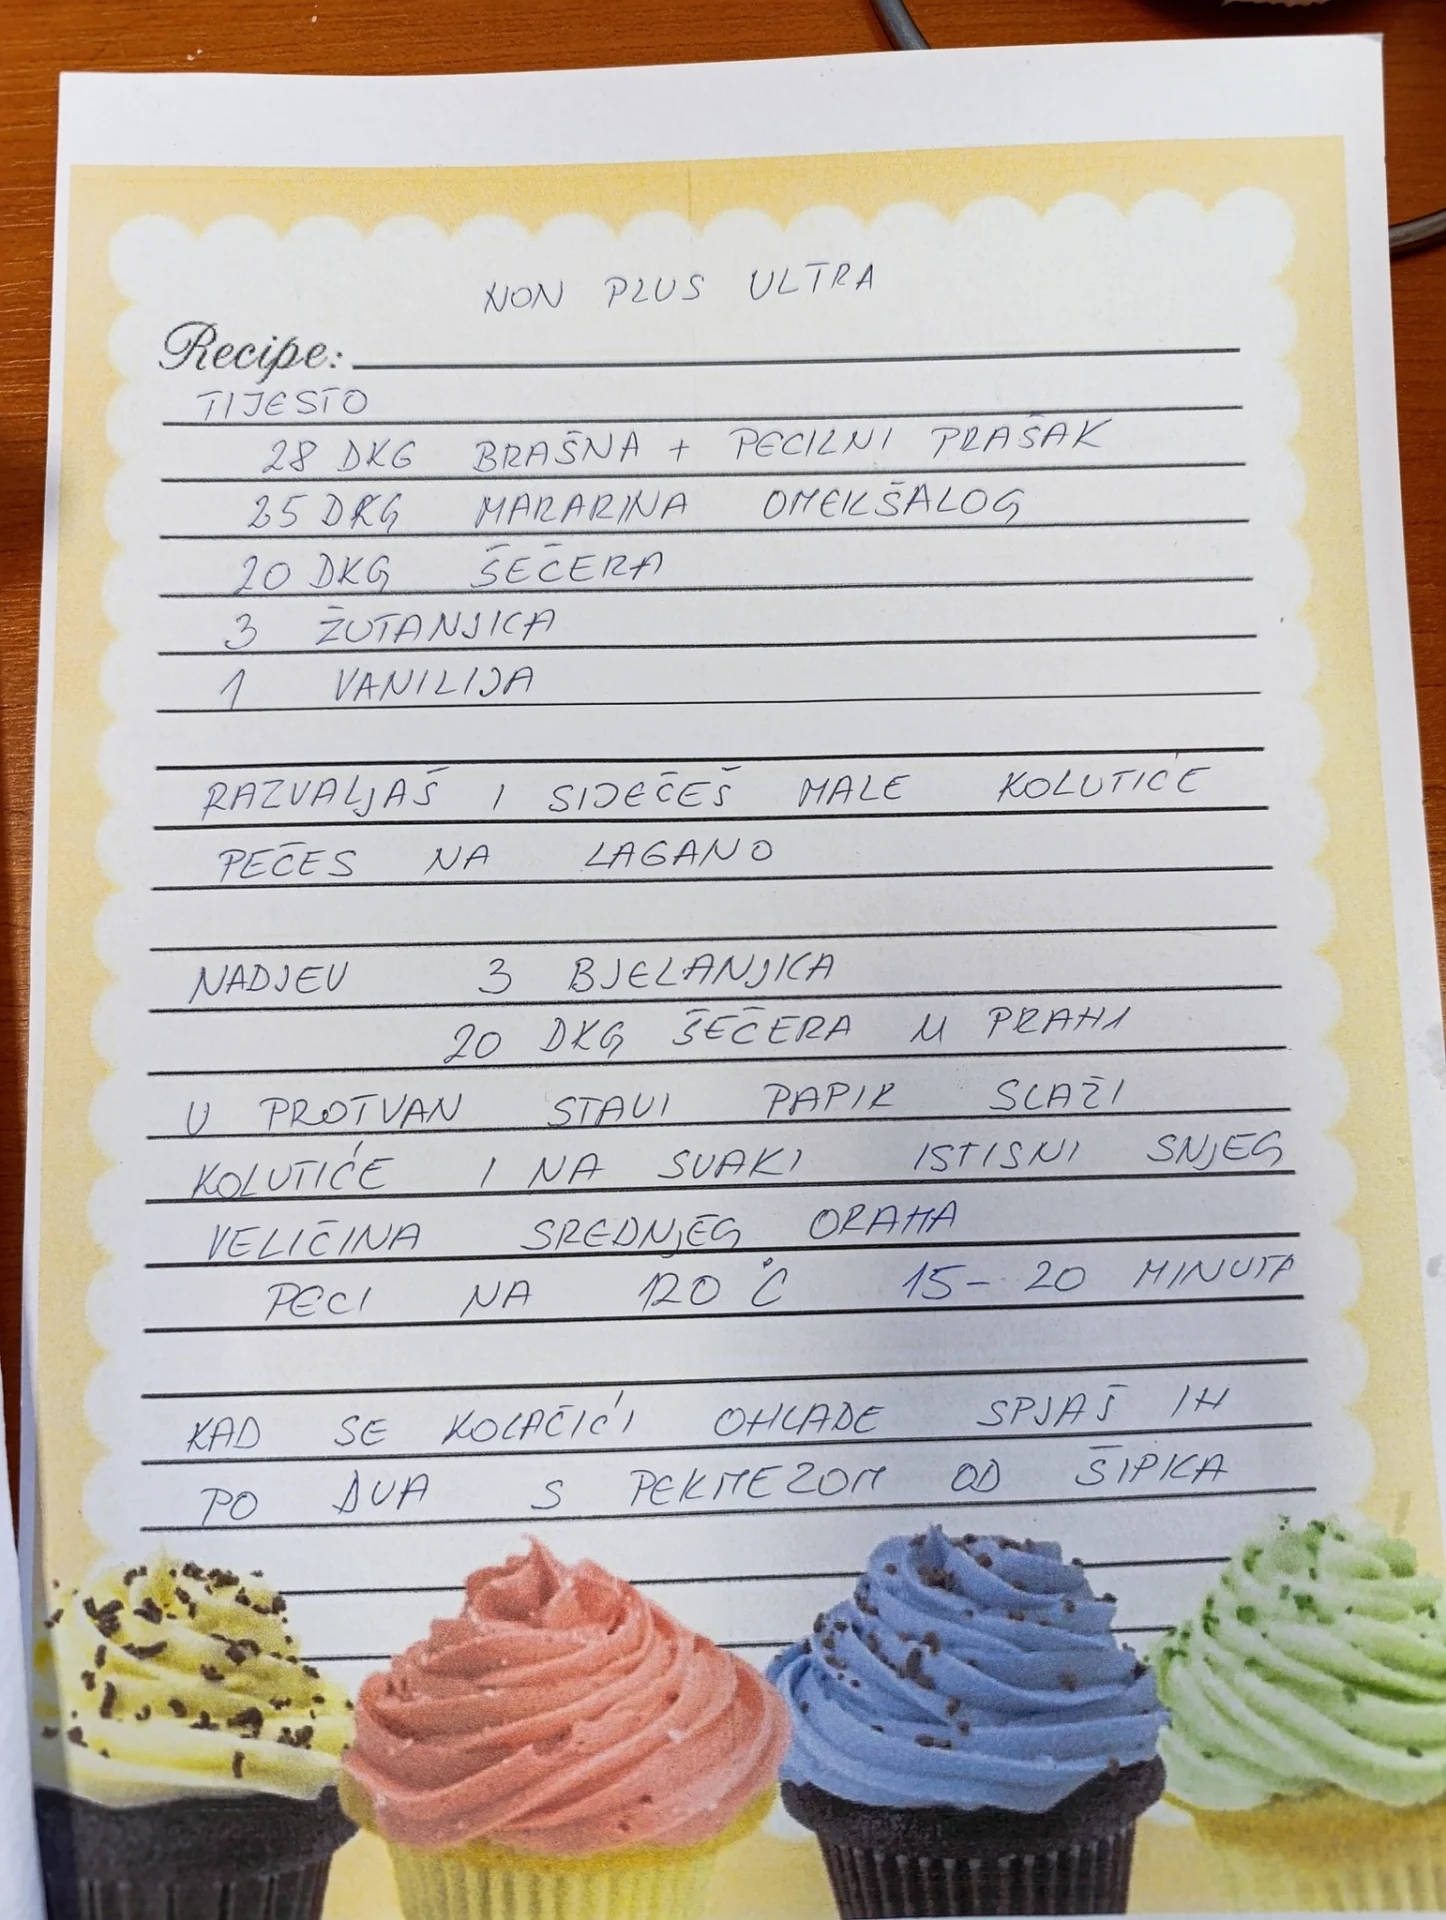 NON PLUS ULTRA
Recipe:
TIJESTO
28 DKG BRAŠNA + PECILNI PRAŠAK
25 DKG MARARINA OMEKŠALOG
20 DKG ŠEČERA
3 ŽUTANJICA
1 VANILIJA
RAZVALJAŠ I SIJEČEŠ MALE KOLUTIĆE
PEČES NA LAGANO
NADJEV 3 BJELANJKA
20 DKG ŠEČERA U PRAHI
U PROTVAN STAVI PAPIR SLAŽI
KOLUTIĆE I NA SVAKI ISTISNI SNJEG
VELIČINA SREDNJEG ORAHA
PECI NA 120 °C 15-20 MINUTA
KAD SE KOLAČIĆI OHLADE SPJAŠ IH
PO DVA S PEKMEZOM OD ŠIPKA